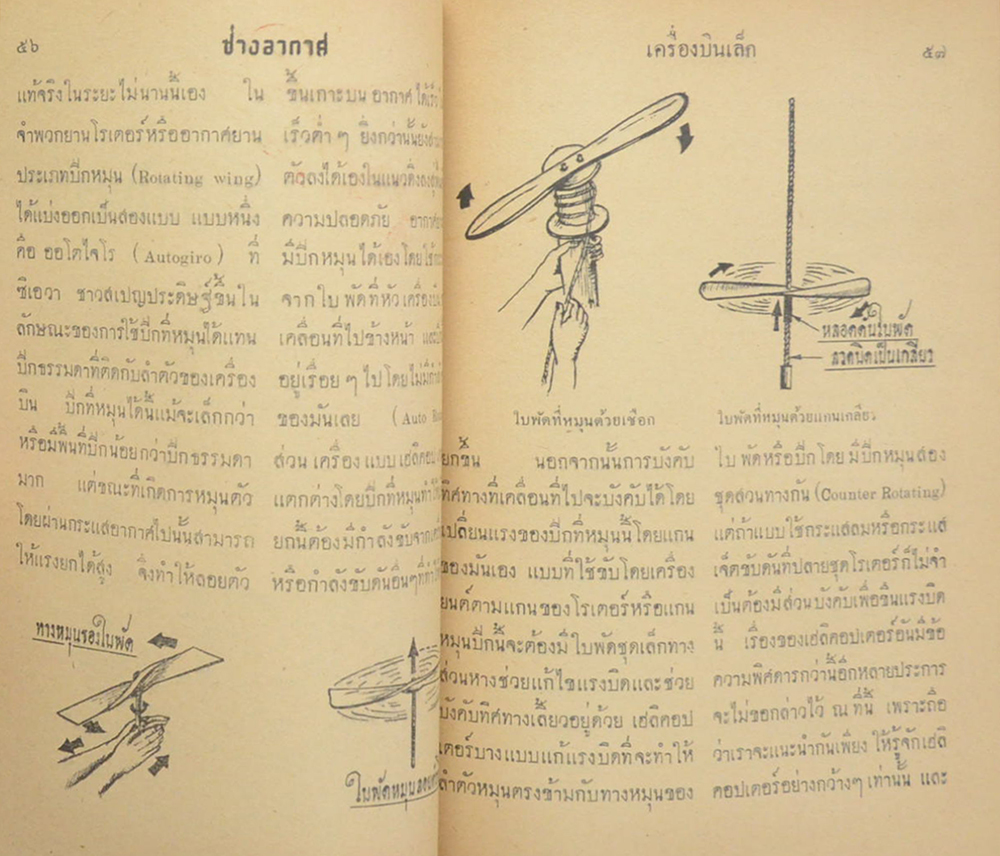 ๕๖
ช่างอากาศ
แท้จริงในระยะไม่นานนี้เอง ใน
จำพวกยานโรเตอร์หรืออากาศยาน
ประเภทปีกหมุน (Rotating wing)
ได้แบ่งออกเป็นสองแบบ แบบหนึ่ง
คือ ออโตไจโร (Autogiro) ที่
ซิเอวา ชาวสเปญประดิษฐ์ขึ้นใน
ลักษณะของการใช้ปีกที่หมุนได้แทน
ปีกธรรมดาที่ติดกับลำตัวของเครื่อง
บิน ปีกที่หมุนได้นี้แม้จะเล็กกว่า
หรือมีพื้นที่ปีกน้อยกว่าปีกธรรมดา
มาก แต่ขณะที่เกิดการหมุนตัว
โดยผ่านกระแสอากาศไปนั้นสามารถ
ให้แรงยกได้สูง จึงทำให้ลอยตัว
ขึ้นเกาะบนอากาศได้
เร็วต่ำ ๆ ยิ่งกว่านั้นยัง
ตัวลงได้เองในแนวดิ่งลงสู่
ความปลอดภัย
มีปีกหมุนได้เองโดยใช้
จากใบพัดที่หัวเครื่อง
เคลื่อนที่ไปข้างหน้า
อยู่เรื่อย ๆ ไปโดยไม่มี
ของมันเลย (Auto
ส่วนเครื่องแบบเฮลิคอป
แตกต่างโดยปีกที่หมุนทำ
ยกนี้ต้องมีกำลังขับจาก
หรือกำลังขับดันอื่นๆที่
ทางหมุนของใบพัด
ใบพัดหมุน
เครื่องบินเล็ก
๕๗
หลอดดันใบพัด
ลวดบิดเป็นเกลียว
ใบพัดที่หมุนด้วยเชือก
ใบพัดที่หมุนด้วยแกนเกลียว
ยกขึ้น นอกจากนั้นการบังคับ
ทิศทางที่เคลื่อนที่ไปจะบังคับได้โดย
เปลี่ยนแรงของปีกที่หมุนนี้โดยแกน
ของมันเอง แบบที่ใช้ขับโดยเครื่อง
ยนต์ตามแกนของโรเตอร์หรือแกน
หมุนปีกนี้จะต้องมีใบพัดชุดเล็กทาง
ส่วนหางช่วยแก้ไขแรงบิดและช่วย
บังคับทิศทางเลี้ยวอยู่ด้วย เฮลิคอป
เตอร์บางแบบแก้แรงบิดที่จะทำให้
ลำตัวหมุนตรงข้ามกับทางหมุนของ
ใบพัดหรือปีกโดยมีปีกหมุนสอง
ชุดสวนทางกัน (Counter Rotating)
แต่ถ้าแบบใช้กระแสลมหรือกระแส
เจ็ตขับดันที่ปลายชุดโรเตอร์ก็ไม่จำ
เป็นต้องมีส่วนบังคับเพื่อขืนแรงบิด
นี้ เรื่องของเฮลิคอปเตอร์อันมีข้อ
ความพิศดารกว่านี้อีกหลายประการ
จะไม่ขอกล่าวไว้ ณ ที่นี้ เพราะถือ
ว่าเราจะแนะนำกันเพียง ให้รู้จักเฮลิ
คอปเตอร์อย่างกว้างๆ เท่านั้น และ